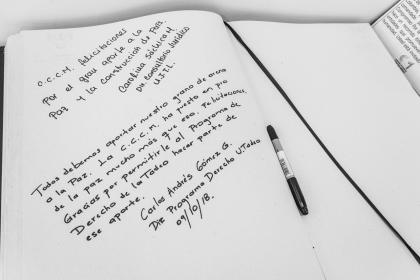 C.C.C.M. felicitaciones
por el gran aporte a la
Paz y la construcción de País.
Carolina
Dir. Consultorio Jurídico
UJTL.
Todos debemos aportar nuestro grano de arena
a la Paz. La C.C.C.M. ha puesto en pro
de la paz mucho más que eso. Felicitaciones,
Gracias por permitirle al Programa de
Derecho de la Tadeo hacer parte de
ese aporte.
Carlos Andrés Gómez G.
Dir Programa Derecho UTadeo
09/10/18.